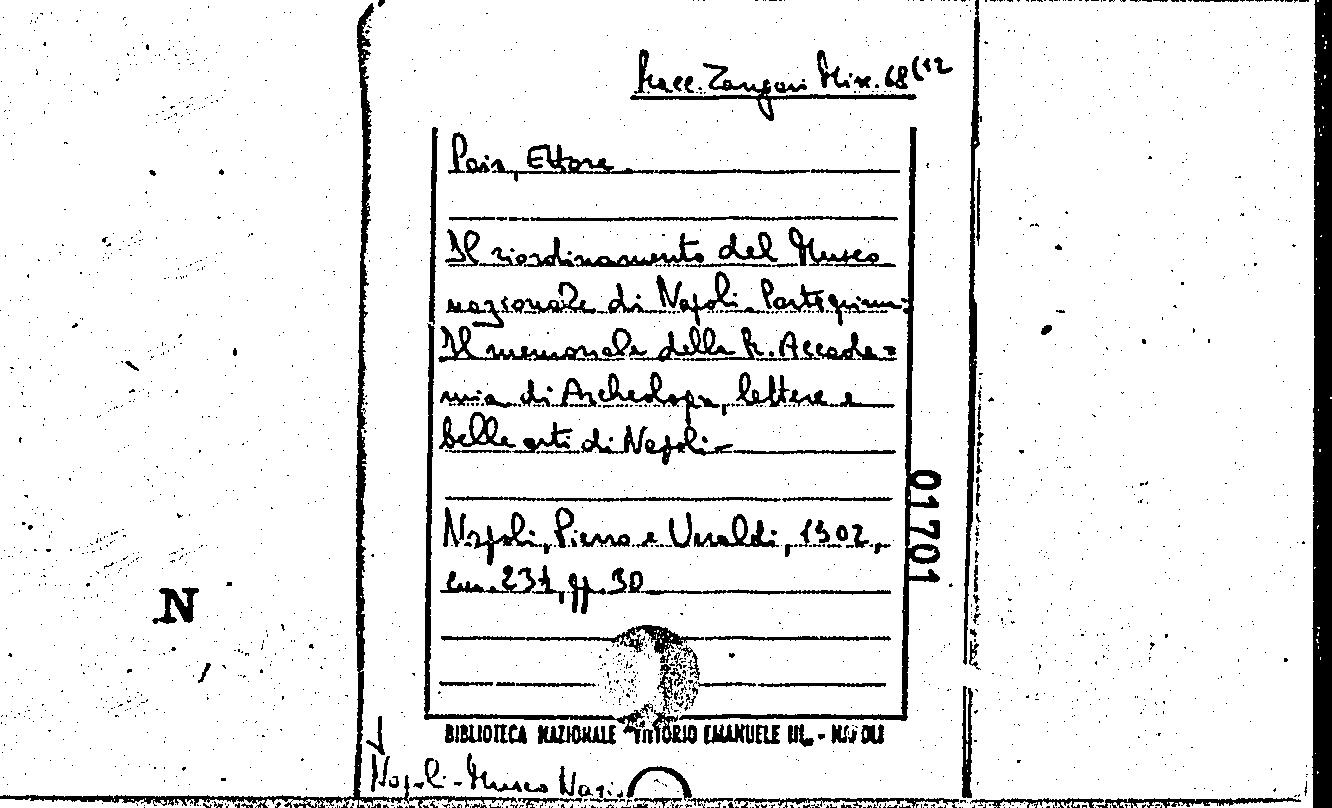 Racc. Zangari Misc. 68(12
Pais, Ettore
Il riordinamento del Museo
nazionale di Napoli. Parte prima:
Il memoriale della R. Accade=
mia di Archeologia, lettere e
belle arti di Napoli-
Napoli, Pierro e Veraldi, 1902,
cm. 23½, pp. 30
01701
N
BIBLIOTECA NAZIONALE "VITTORIO EMANUELE III" - NAPOLI
Napoli - Museo Nazi